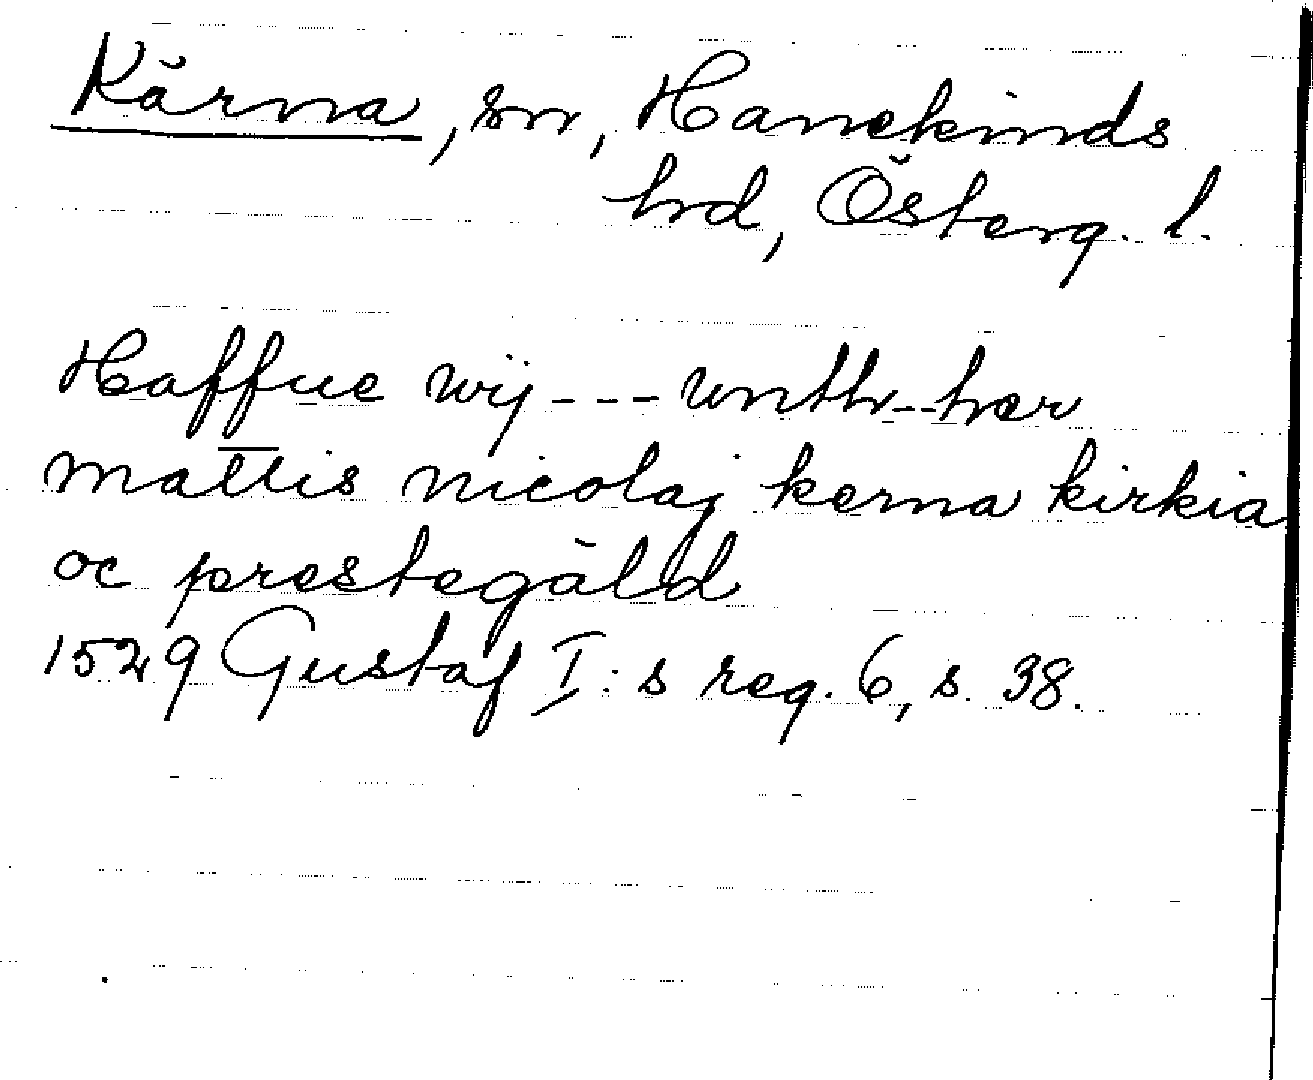 Kärna, sn, Hanekinds
hrd, Österg. l.
Haffue wij --- unth--her
mattis nicolaj kerna kirkia
oc prestegäld
1529 Gustaf I:s reg. 6, s. 38.